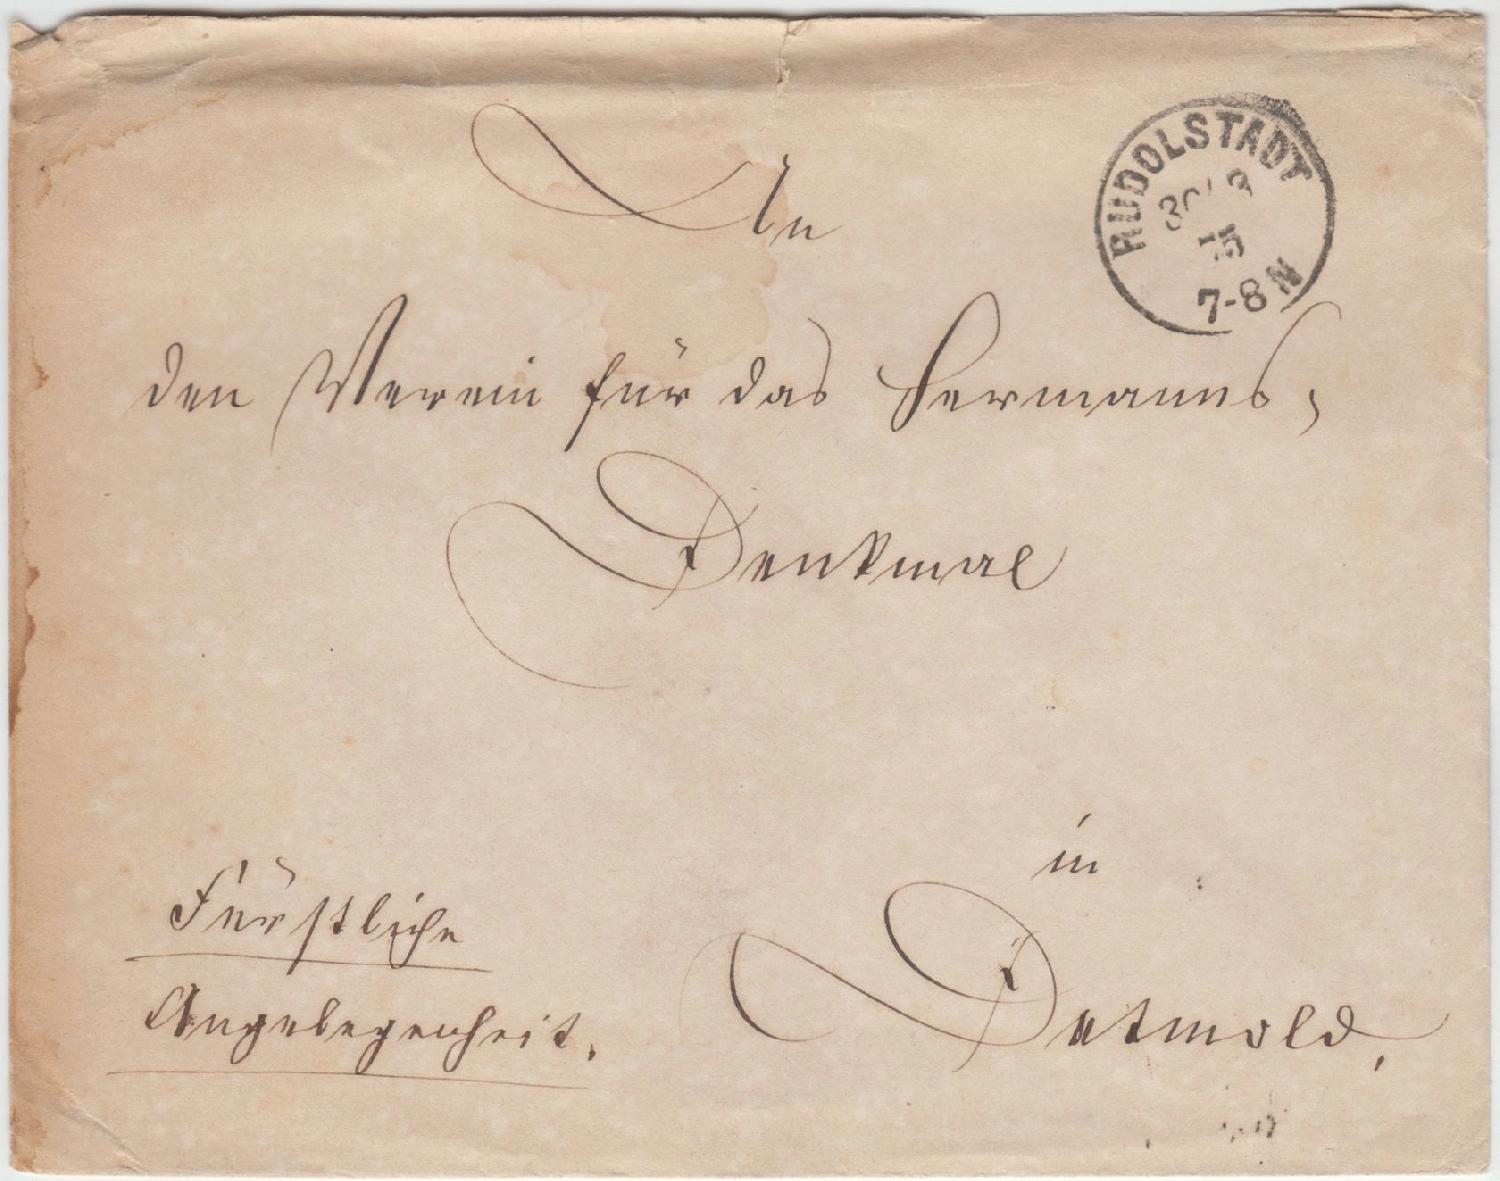 An
RUDOLSTADT
7-8 N
den Verein für das Hermanns-
Denkmal
in
Fürstliche
Angelegenheit.
Detmold.